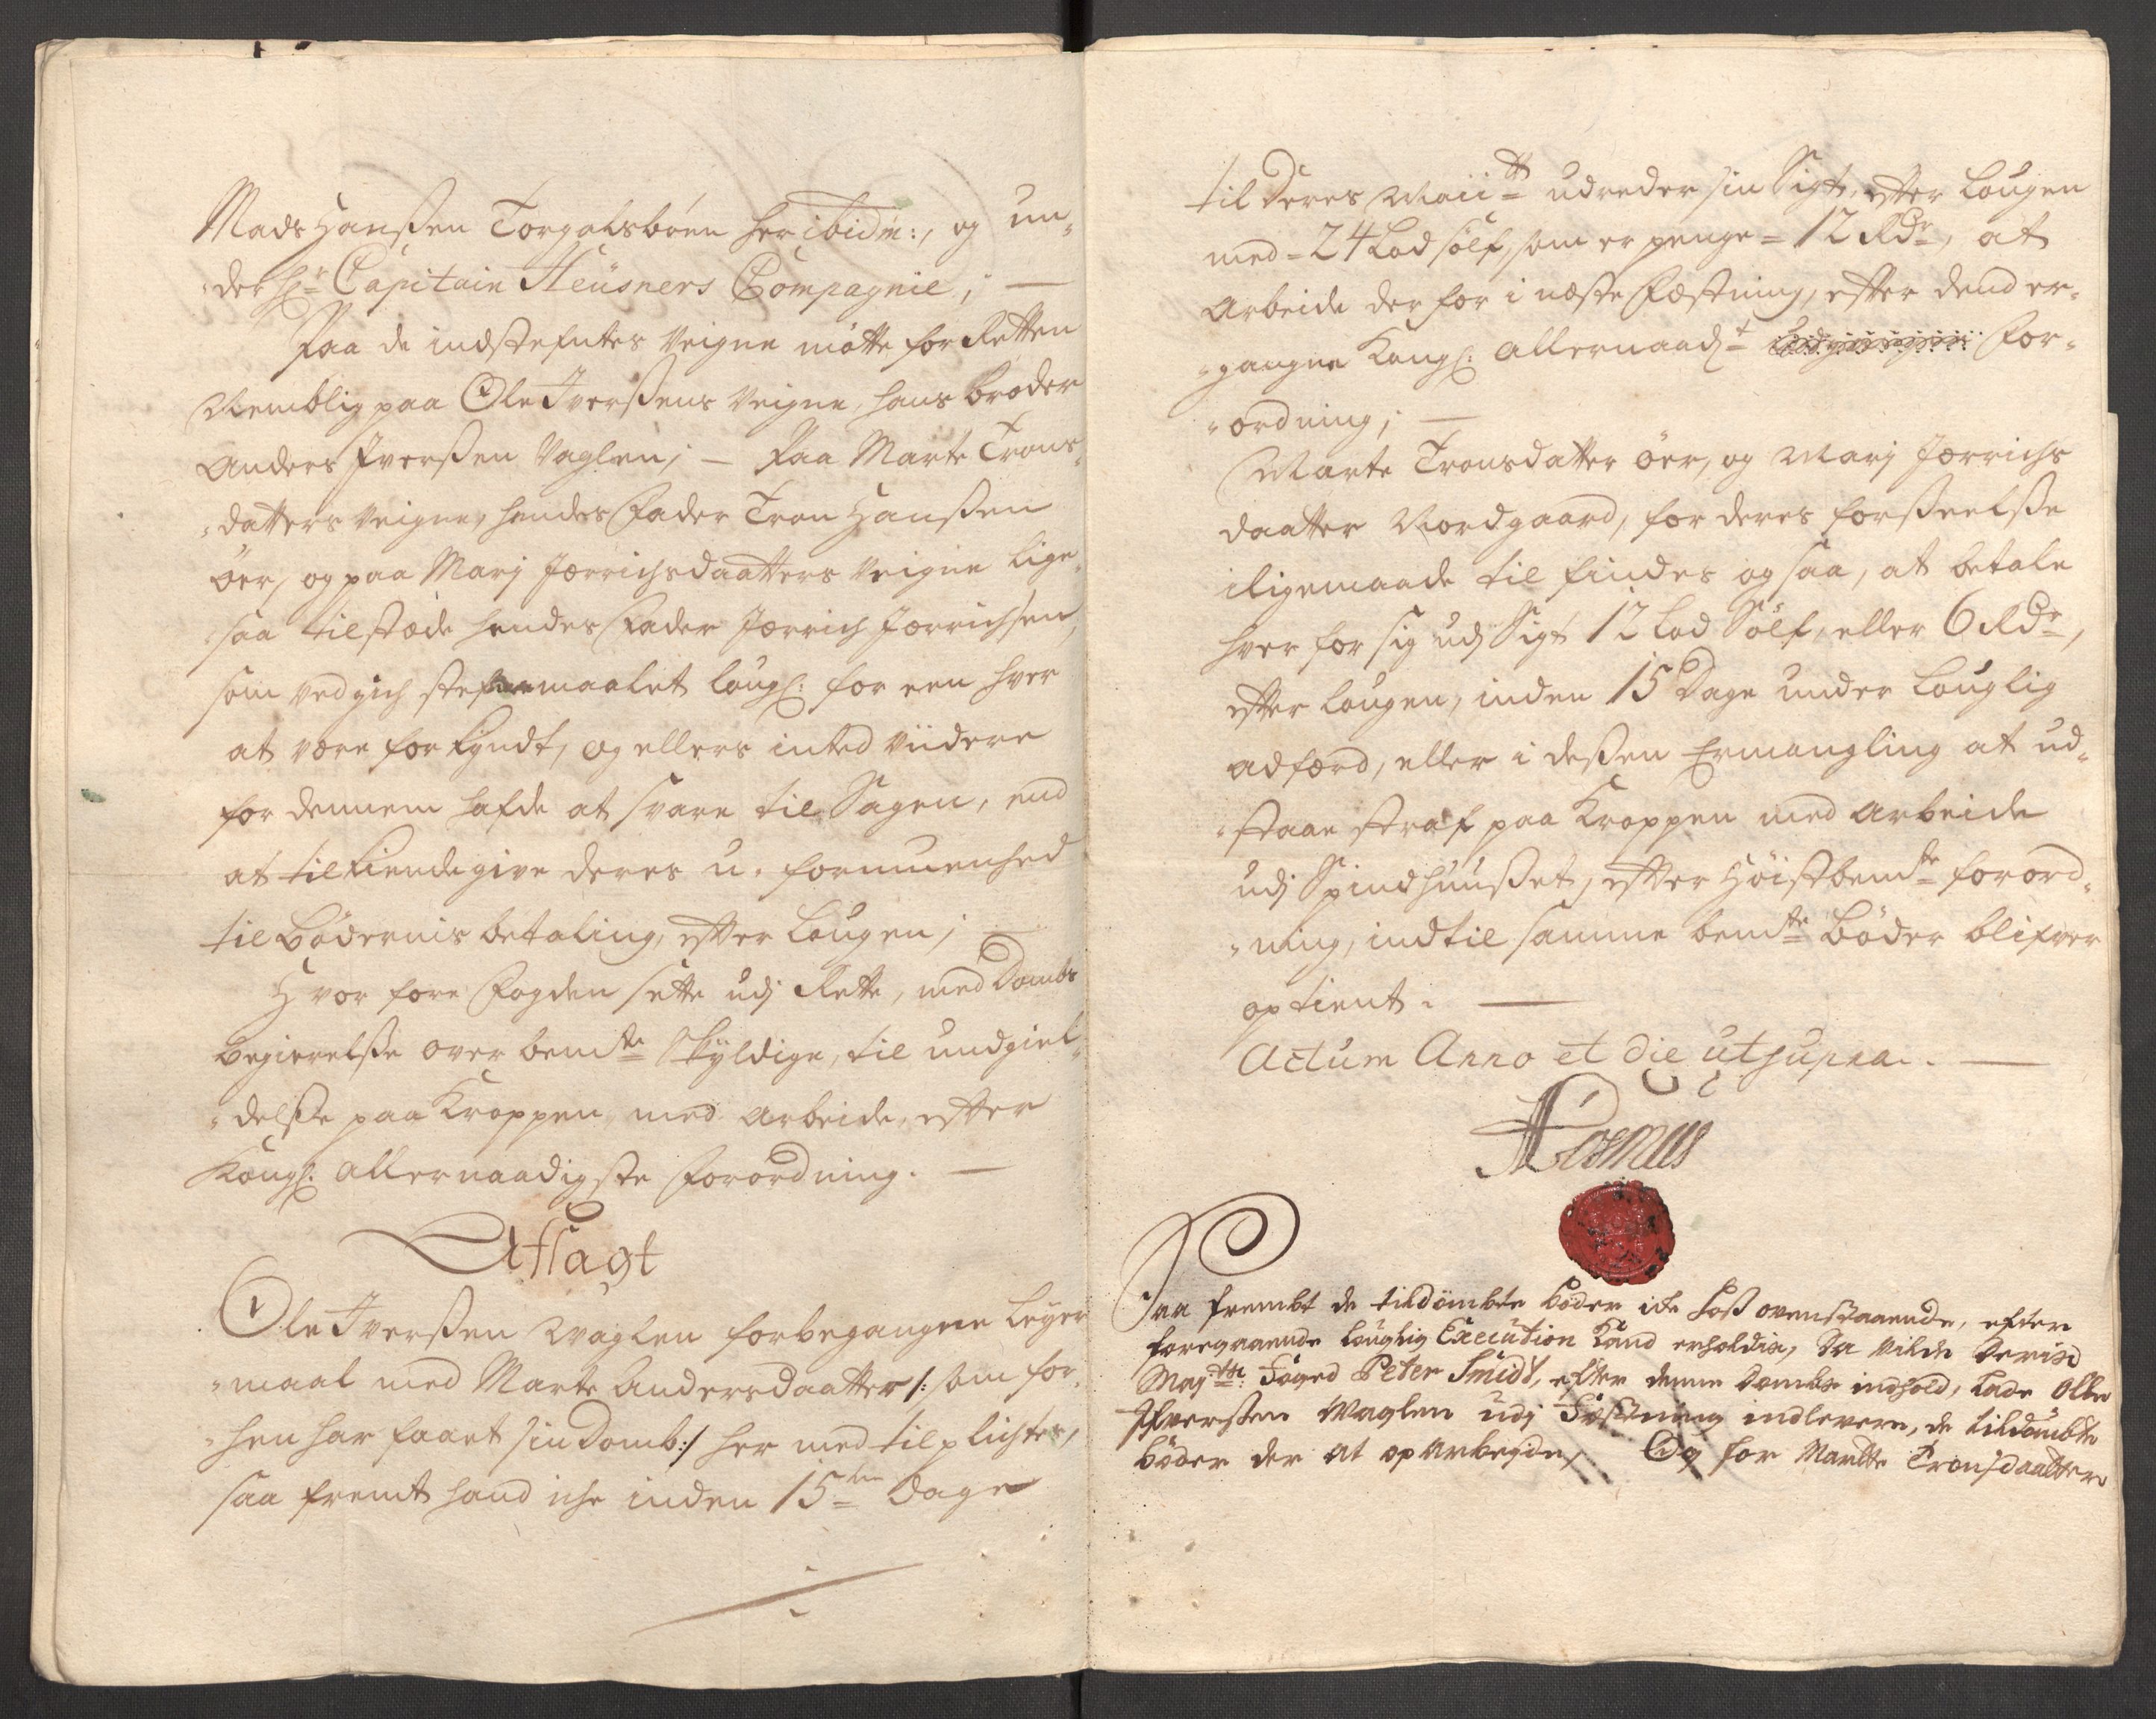 Mads Hanßen Torgalsböen her ibid:m, og un-
der Hr Capitain Heüsners Compagnie; —
Paa de indstefntes Veigne mötte for Retten
Nemblig paa Ole Iverßens Veigne, hans broder
Anders Iverßen Vaglen; — Paa Marte Trons-
datters Veigne, hendes Fader Tron Hanßen
öer, og paa Marj Jörrichsdaatters Veigne lige-
saa tilstæde hendes Fader Jörrich Jörrichsen,
som vedgich stefnemaalet lougl: for een hver
at være forkyndt, og ellers inted viidere
for dennem hafde at svare til Sagen, end
at tilkiendegive deres u-formuenhed
til bödernis betaling, efter Lougen; —
Hvor fore Fogden sette udj Rette, med Dombs
begierelße over bemte skÿldige, til undgiel-
delße paa Kroppen, med arbeide, efter
Kongl: allernaadigste forordning. —
Afsagt
Ole Iverßen Waglen forbegangne Leyer-
maal med Marte Andersdaatter /: som for-
hen har faaet sin Domb :/ her med tilplichtes,
saa fremt hand iche inden 15ten Dage
til Deres Maiitt udreder sin Sigt, efter Lougen
med = 24 Lod sölf, som er penge = 12 Rdr, at
Arbeide der for i næste Fæstning, efter dend er-
gangne Kongl: allernaadt for-
ordning; —
Marte Tronsdatter öer, og Marj Jörrichs
daatter Nordgaard, for deres forßeelße
iligemaade tilfindes ogsaa, at betale
hver for sig udj Sigt 12 Lod Sölf, eller 6 Rdr,
efter Lougen, inden 15 Dage under Louglig
adfærd, eller i deßen Ermangling at ud-
staae straf paa Kroppen med arbeide
udj Spindhuußet, efter Höistbemte forord-
ning, indtil samme bemte Böder blifver
optient. —
Actum Anno et die utsupra. —
Saa frembt de tildömbte böder iche hoß ovenstaaende, efter
foregaaende louglig Execution kand erholdis, Da vilde Deris
Majtts: Foged Peter Smidt, efter denne Dombs indhold, lade Olle
Ifverßen Waglen udj Fæstning indlevere, de tildömbte
böder der at oparbeyde, Og for Martte Tronsdaatter